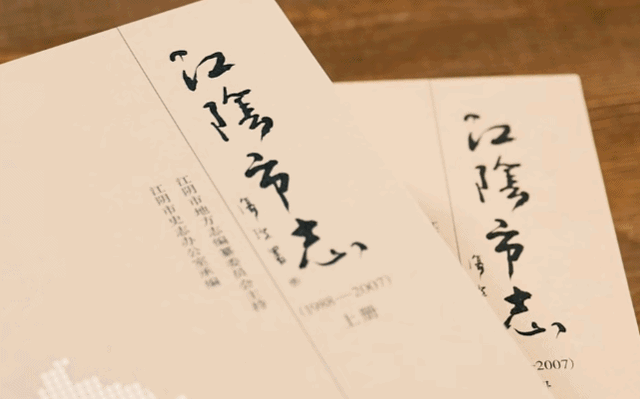 江陰市志
(1988—2007)
上册
江阴市地方志编纂委员会主持
江阴市史志办公室承编
江陰市志
-2007)